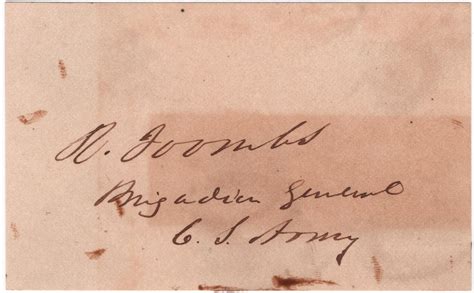 R. Toombs
Brigadier General
C. S. Army